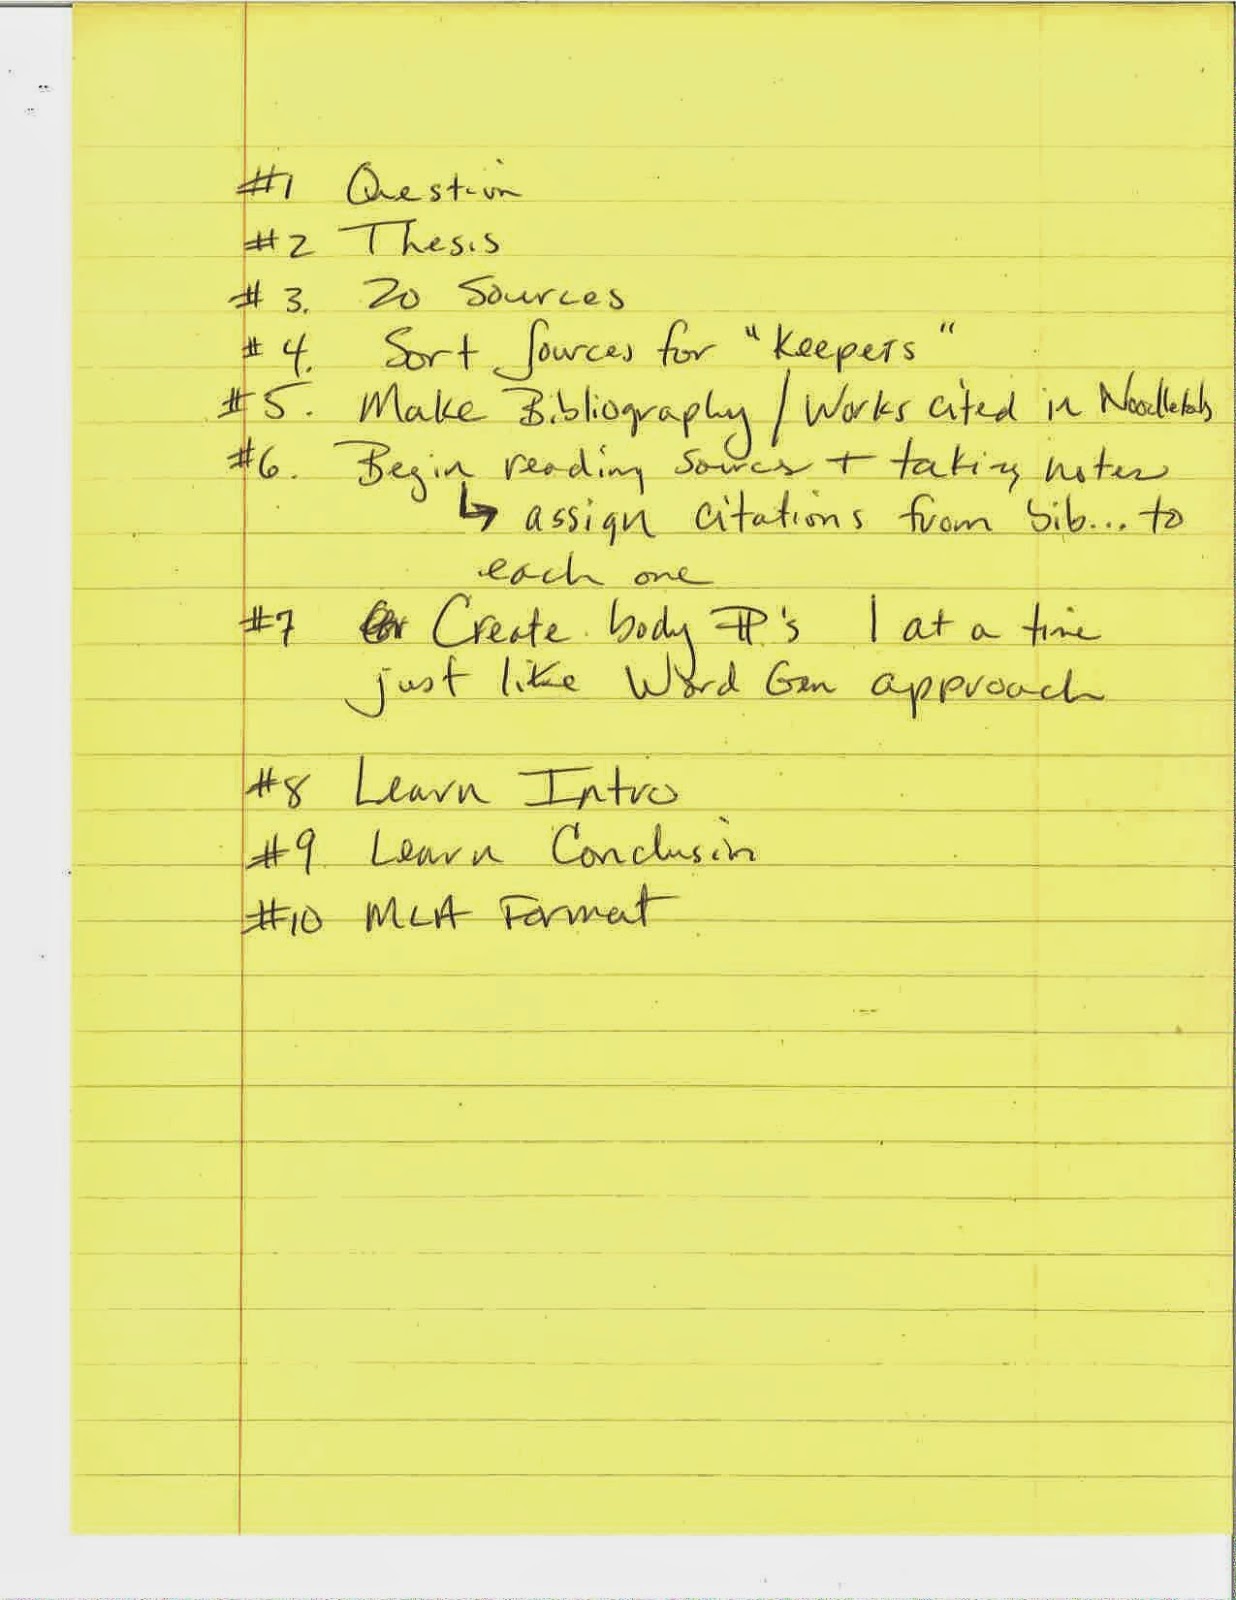 #1 Question
#2 Thesis
#3. 20 Sources
#4. Sort Sources for "Keepers"
#5. Make Bibliography / Works cited in Noodletools
#6. Begin reading sources + taking notes
↳ assign citations from bib... to
each one
#7 Create body ¶'s 1 at a time
just like Word Gen approach
#8 Learn Intro
#9 Learn Conclusion
#10 MLA Format